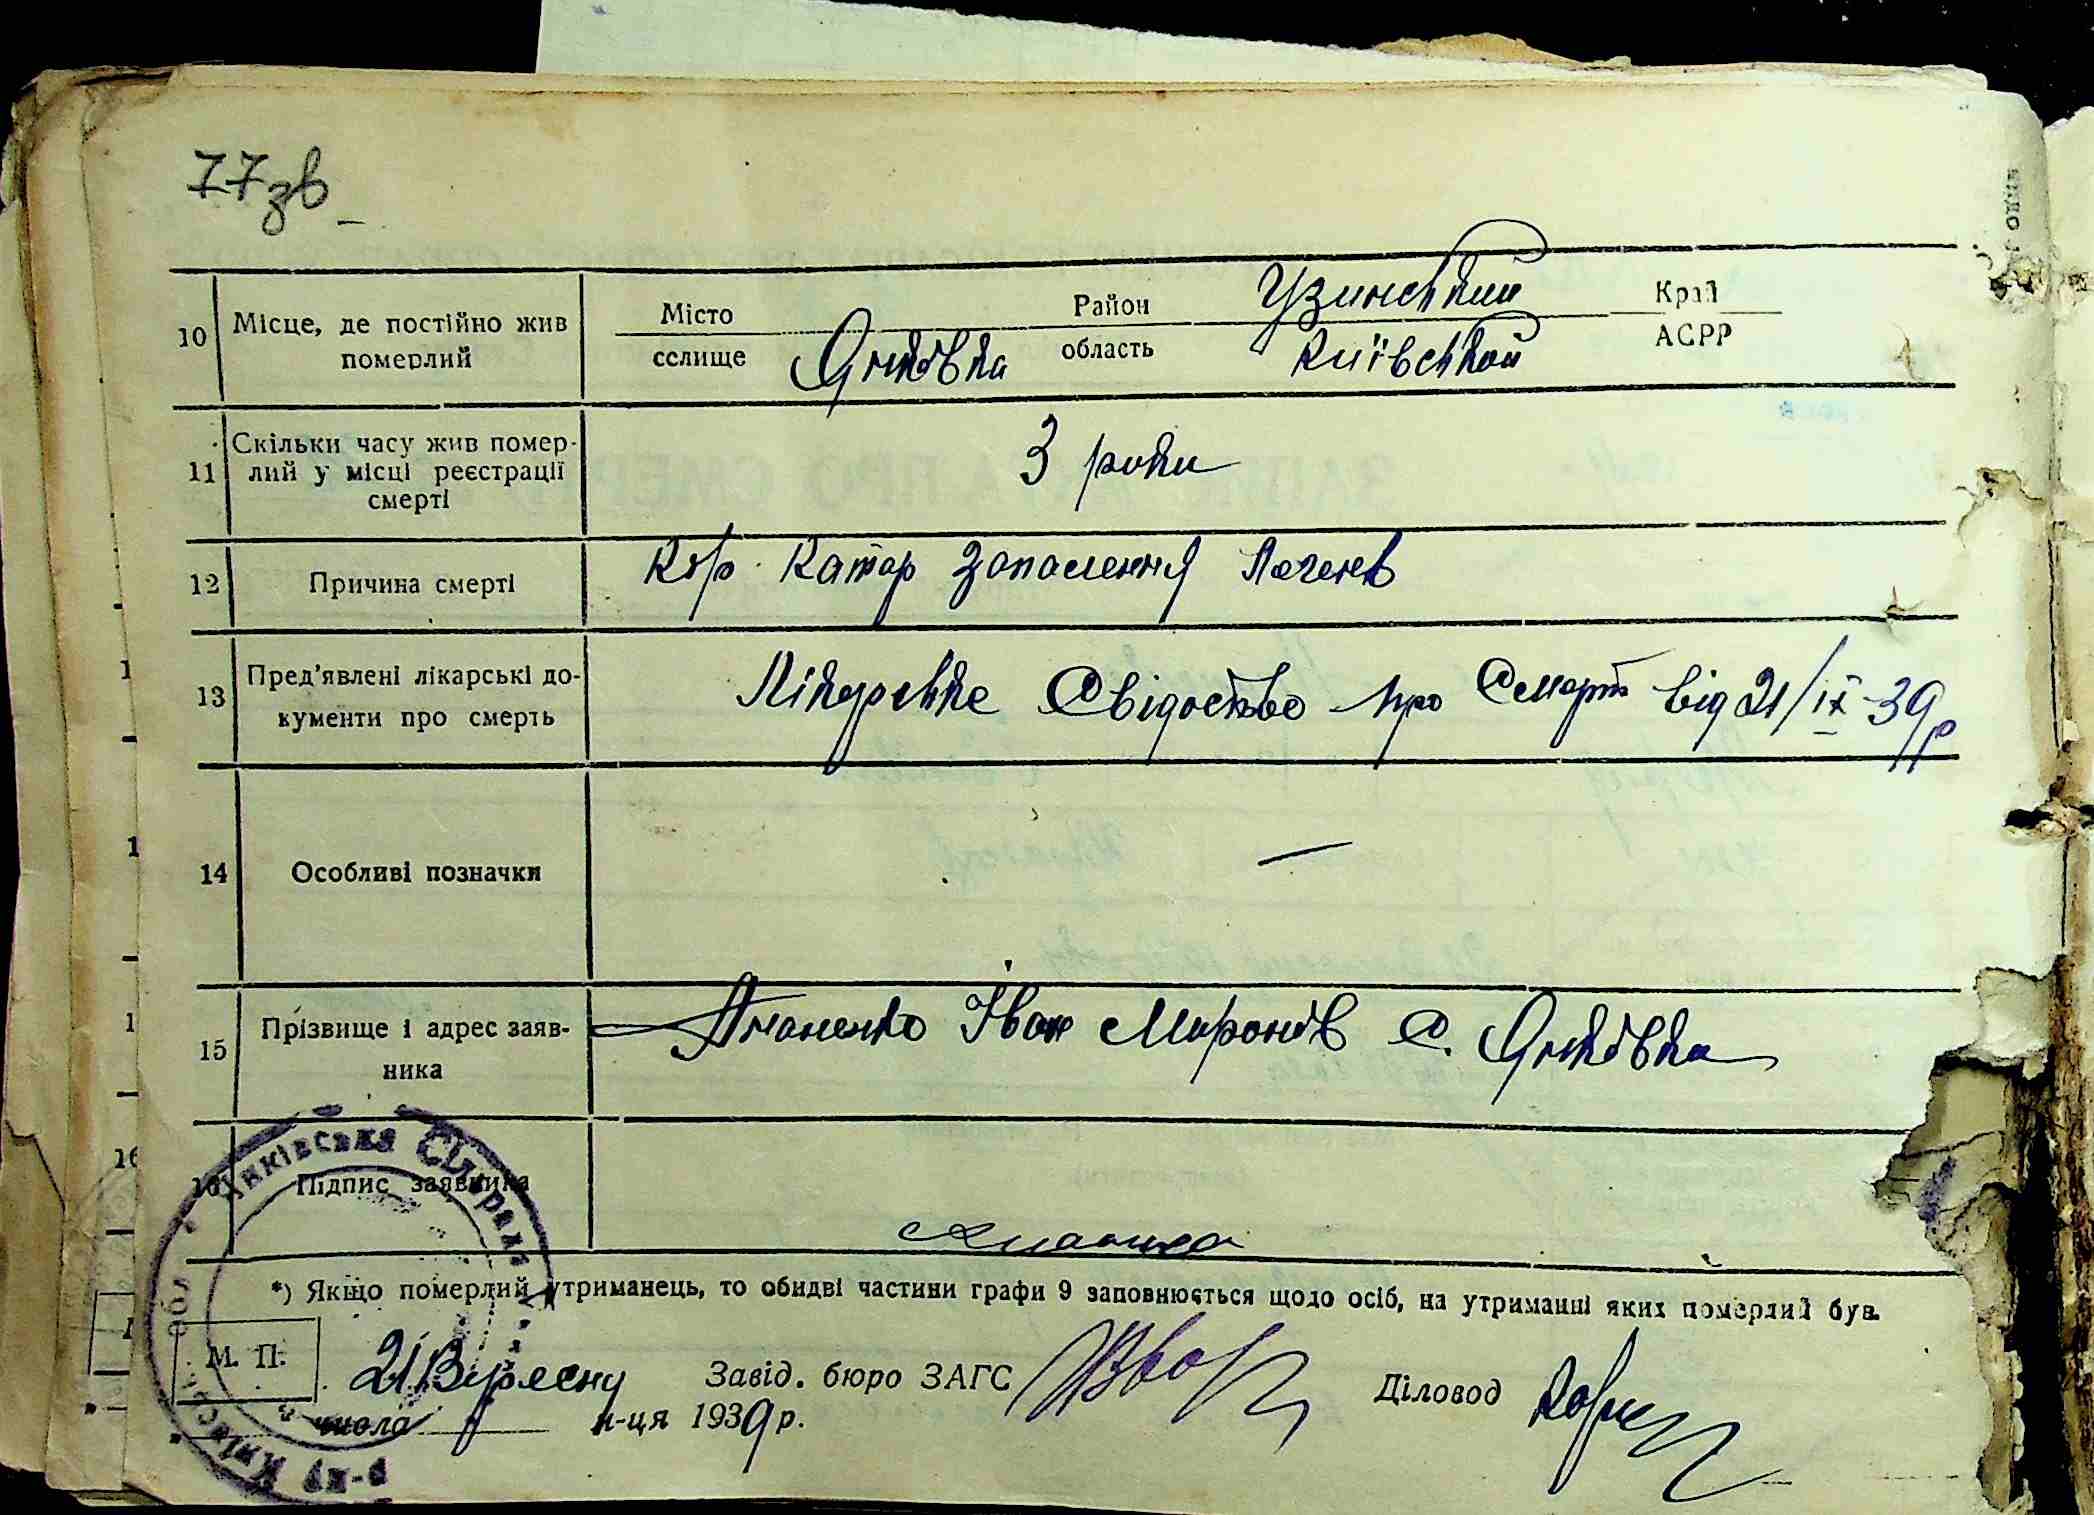 77 зв
10 Місце, де постійно жив померлий
Місто Район Узинський Край
селище Янківка область Київської АСРР
11 Скільки часу жив помер-
лий у місці реєстрації
смерті
3 роки
12 Причина смерті
Кор. Катар Запалення Легенів
13 Пред'явлені лікарські до-
кументи про смерть
Лікарське Свідоство про Смерть від 21/IX-39р
14 Особливі позначки
—
15 Прізвище і адрес заяв-
ника
Ананенко Іван Миронів С. Янківка
16 Підпис заявника
*) Якщо померлий утриманець, то обидві частини графи 9 заповнюється щодо осіб, на утриманні яких померлий був.
М. П. 21 Вересня Завід. бюро ЗАГС Діловод
числа м-ця 1939 р.
Янківська Сільрада
р-ну Київської обл